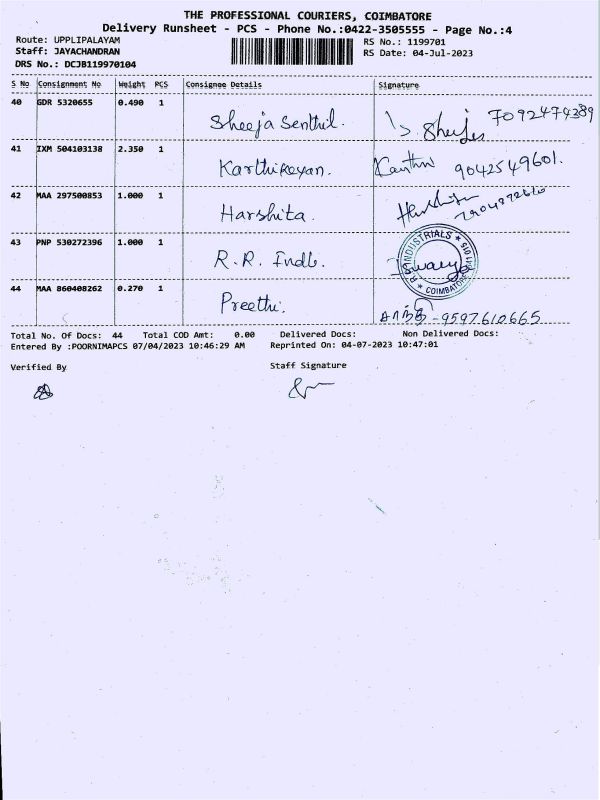 THE PROFESSIONAL COURIERS, COIMBATORE
Delivery Runsheet - PCS - Phone No.:0422-3505555 - Page No.:4
Route: UPPLIPALAYAM RS No.: 1199701
Staff: JAYACHANDRAN RS Date: 04-Jul-2023
DRS No.: DCJB119970104
S No Consignment No Weight PCS Consignee Details Signature
40 GDR 5320655 0.490 1 Sheeja Senthil. 7092474389
41 IXM 504103138 2.350 1 Karthikeyan. 9042549601.
42 MAA 297500853 1.000 1 Harshita.
43 PNP 530272396 1.000 1 R.R. Indl. INDUSTRIALS COIMBATORE
44 MAA 860408262 0.270 1 Preethi. - 9597610665
Total No. Of Docs: 44 Total COD Amt: 0.00 Delivered Docs: Non Delivered Docs:
Entered By :POORNIMAPCS 07/04/2023 10:46:29 AM Reprinted On: 04-07-2023 10:47:01
Verified By Staff Signature